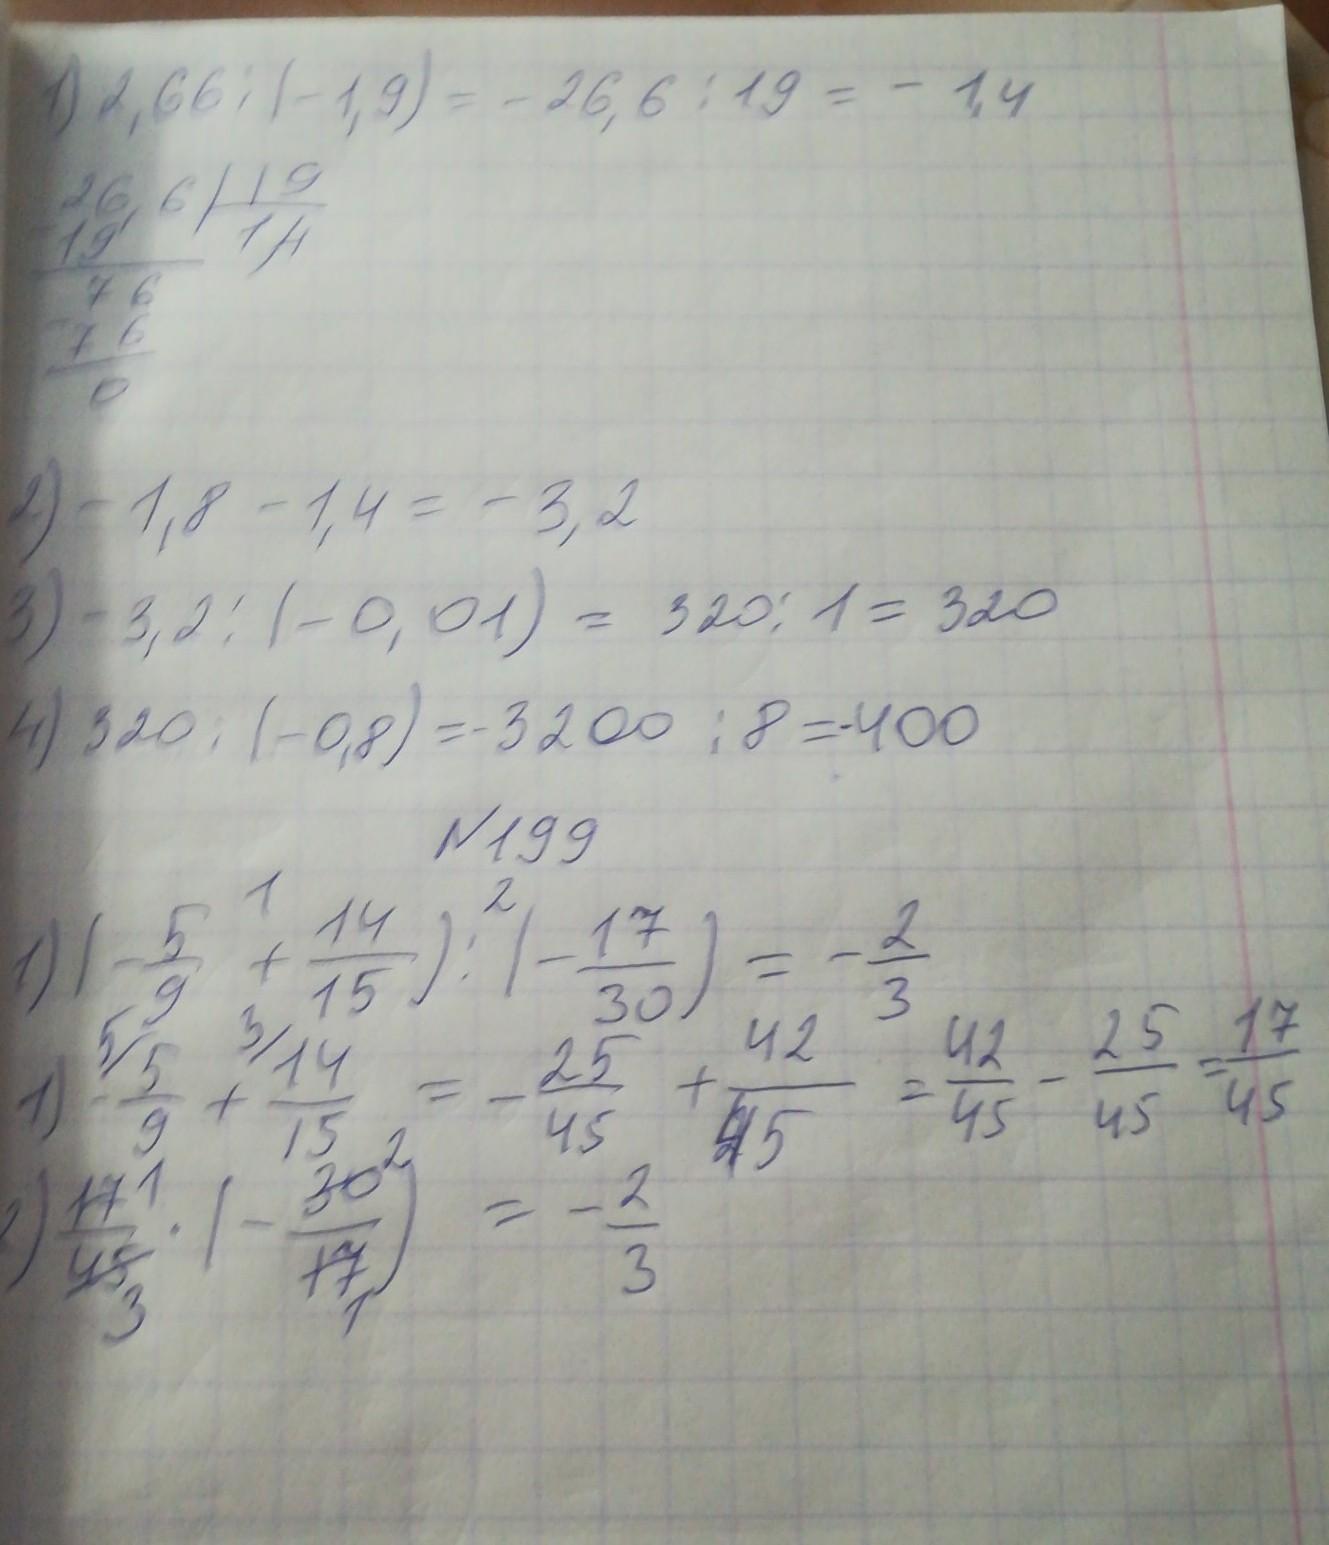 1) 2,66 : (-1,9) = -26,6 : 19 = -1,4
26,6 | 19
19 1,4
76
76
0
2) -1,8 - 1,4 = -3,2
3) -3,2 : (-0,01) = 320 : 1 = 320
4) 320 : (-0,8) = -3200 : 8 = -400
№199
1 2
1) (-5/9 + 14/15) : (-17/30) = -2/3
5/ 3/
1) -5/9 + 14/15 = -25/45 + 42/45 = 42/45 - 25/45 = 17/45
1 2
2) 17/45 · (-30/17) = -2/3
3 1